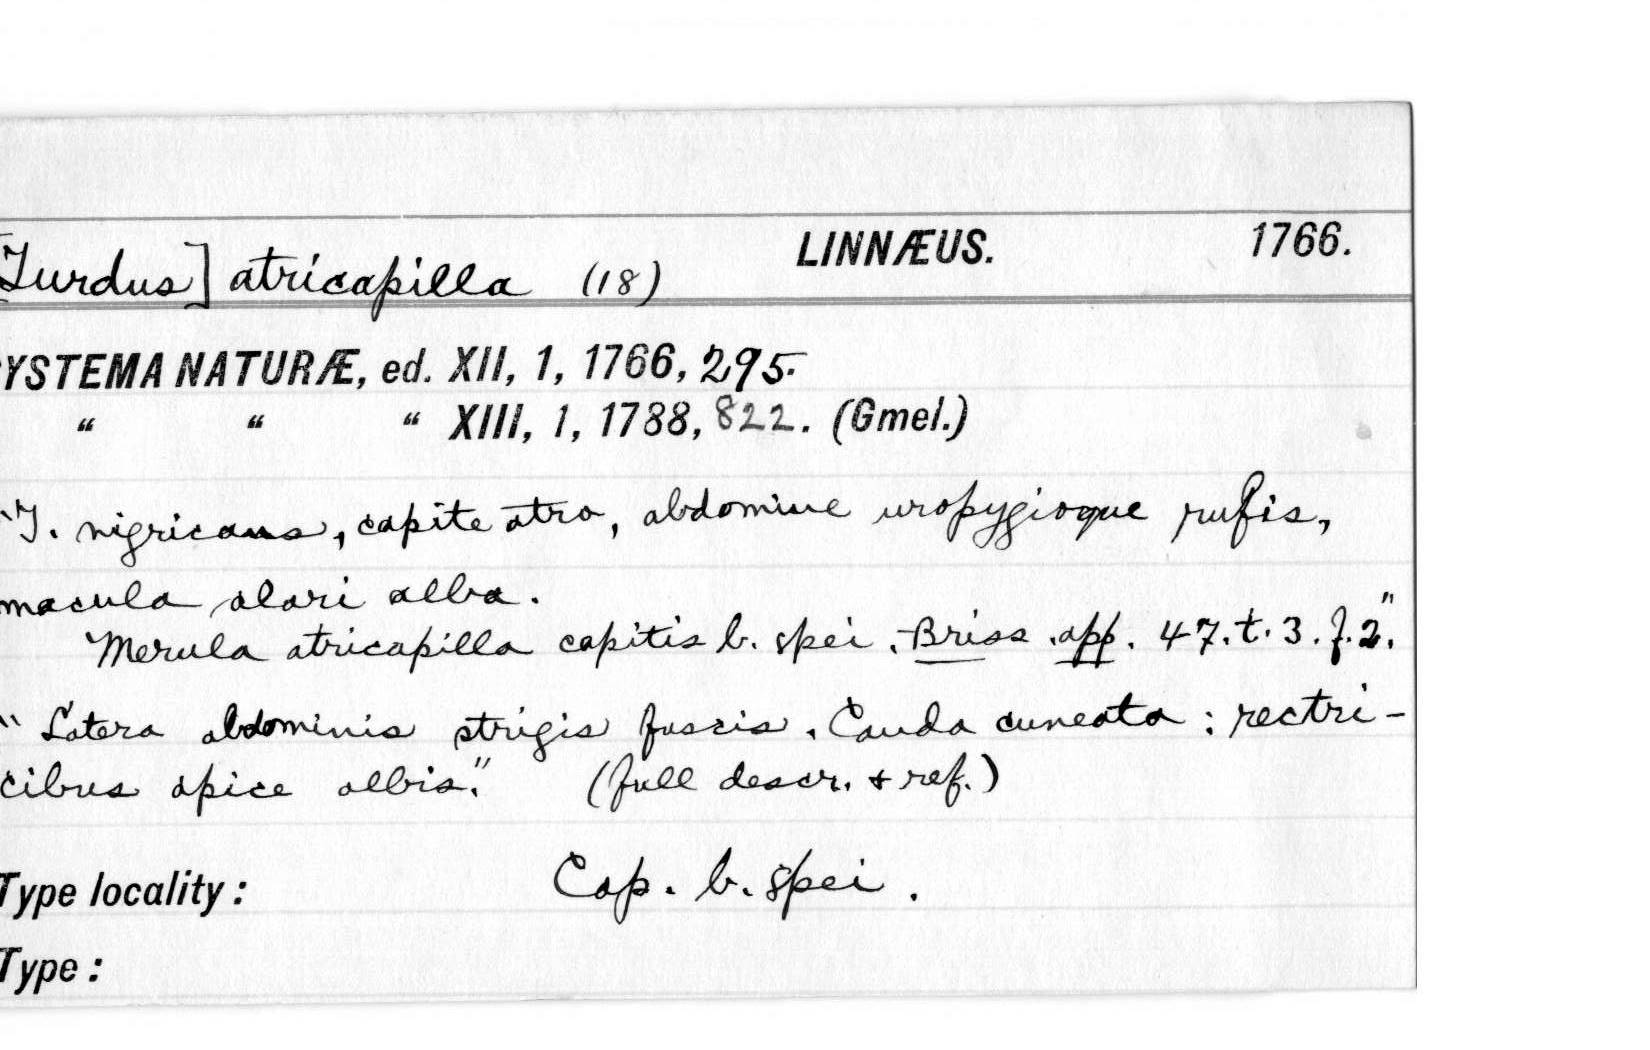 [Turdus] atricapilla (18) LINNÆUS. 1766.
YSTEMA NATURÆ, ed. XII, 1, 1766, 295.
“ “ “ XIII, 1, 1788, 822. (Gmel.)
"T. nigricans, capite atro, abdomine uropygioque rufis,
macula alari alba.
Merula atricapilla capitis b. spei. Briss. app. 47. t. 3. f. 2."
"Latera abdominis strigis fuscis. Cauda cuneata: rectri-
cibus apice albis." (full descr. & ref.)
Type locality: Cap. b. spei.
Type: